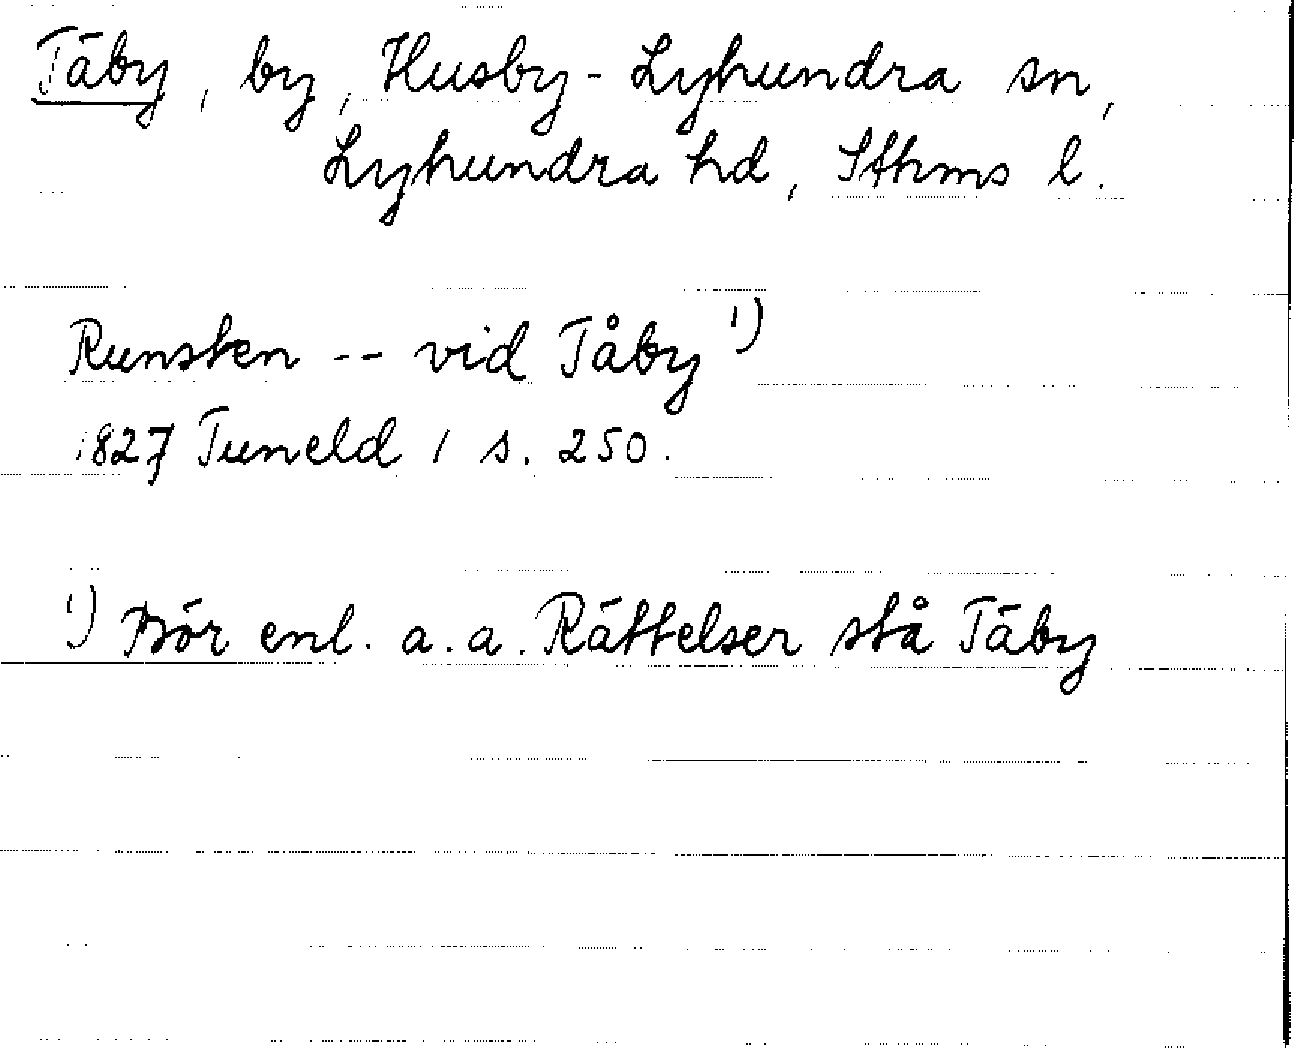 Täby, by, Husby-Lyhundra sn,
Lyhundra hd, Sthms l.
Runsten -- vid Tåby ¹)
1827 Tuneld 1 s. 250.
¹) Bör enl. a.a. Rättelser stå Täby